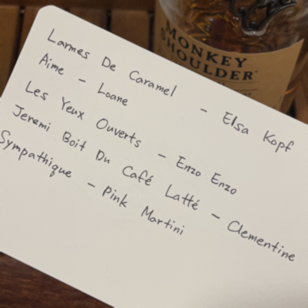 MONKEY
SHOULDER
Larmes De Caramel - Elsa Kopf
Aime - Loane
Les Yeux Ouverts - Enzo Enzo
Jeremi Boit Du Café Latté - Clementine
Sympathique - Pink Martini